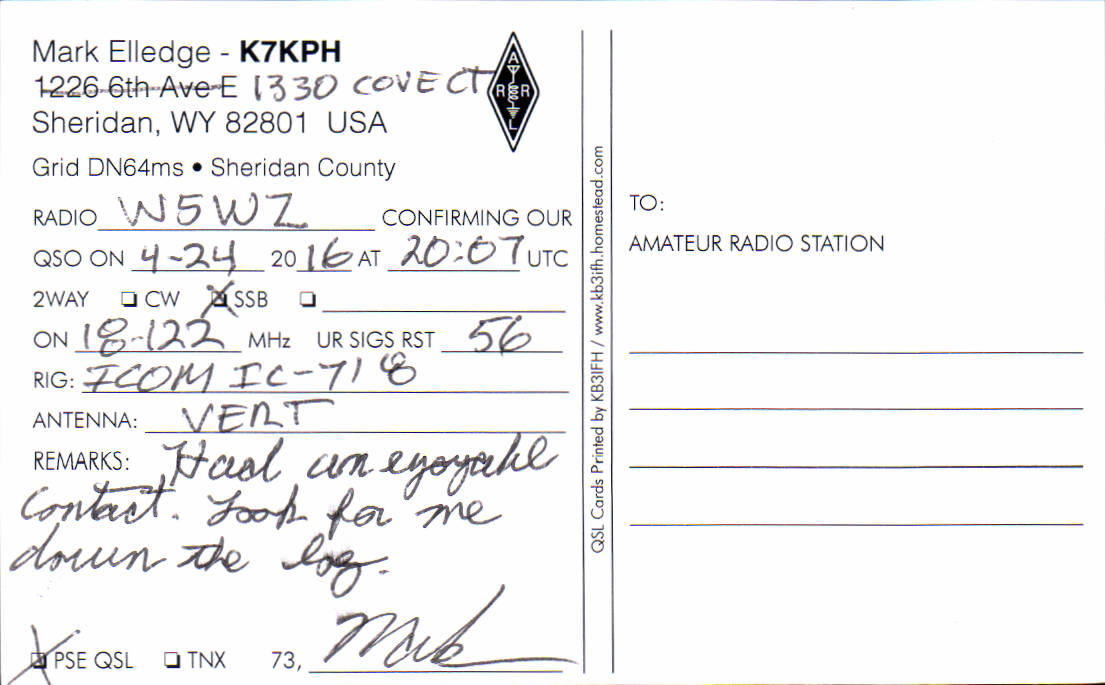 Mark Elledge - K7KPH
1226 6th Ave E 1330 COVE CT
Sheridan, WY 82801 USA
Grid DN64ms • Sheridan County
RADIO W5WZ CONFIRMING OUR
QSO ON 4-24 2016 AT 20:07 UTC
2WAY ❑ CW ☒ SSB ❑
ON 18-122 MHz UR SIGS RST 56
RIG: ICOM IC-718
ANTENNA: VERT
REMARKS: Had an enjoyable
Contact. Look for me
down the log.
☒ PSE QSL ❑ TNX 73, Mark
A
R R
L
QSL Cards Printed by KB3IFH / www.kb3ifh.homestead.com
TO:
AMATEUR RADIO STATION